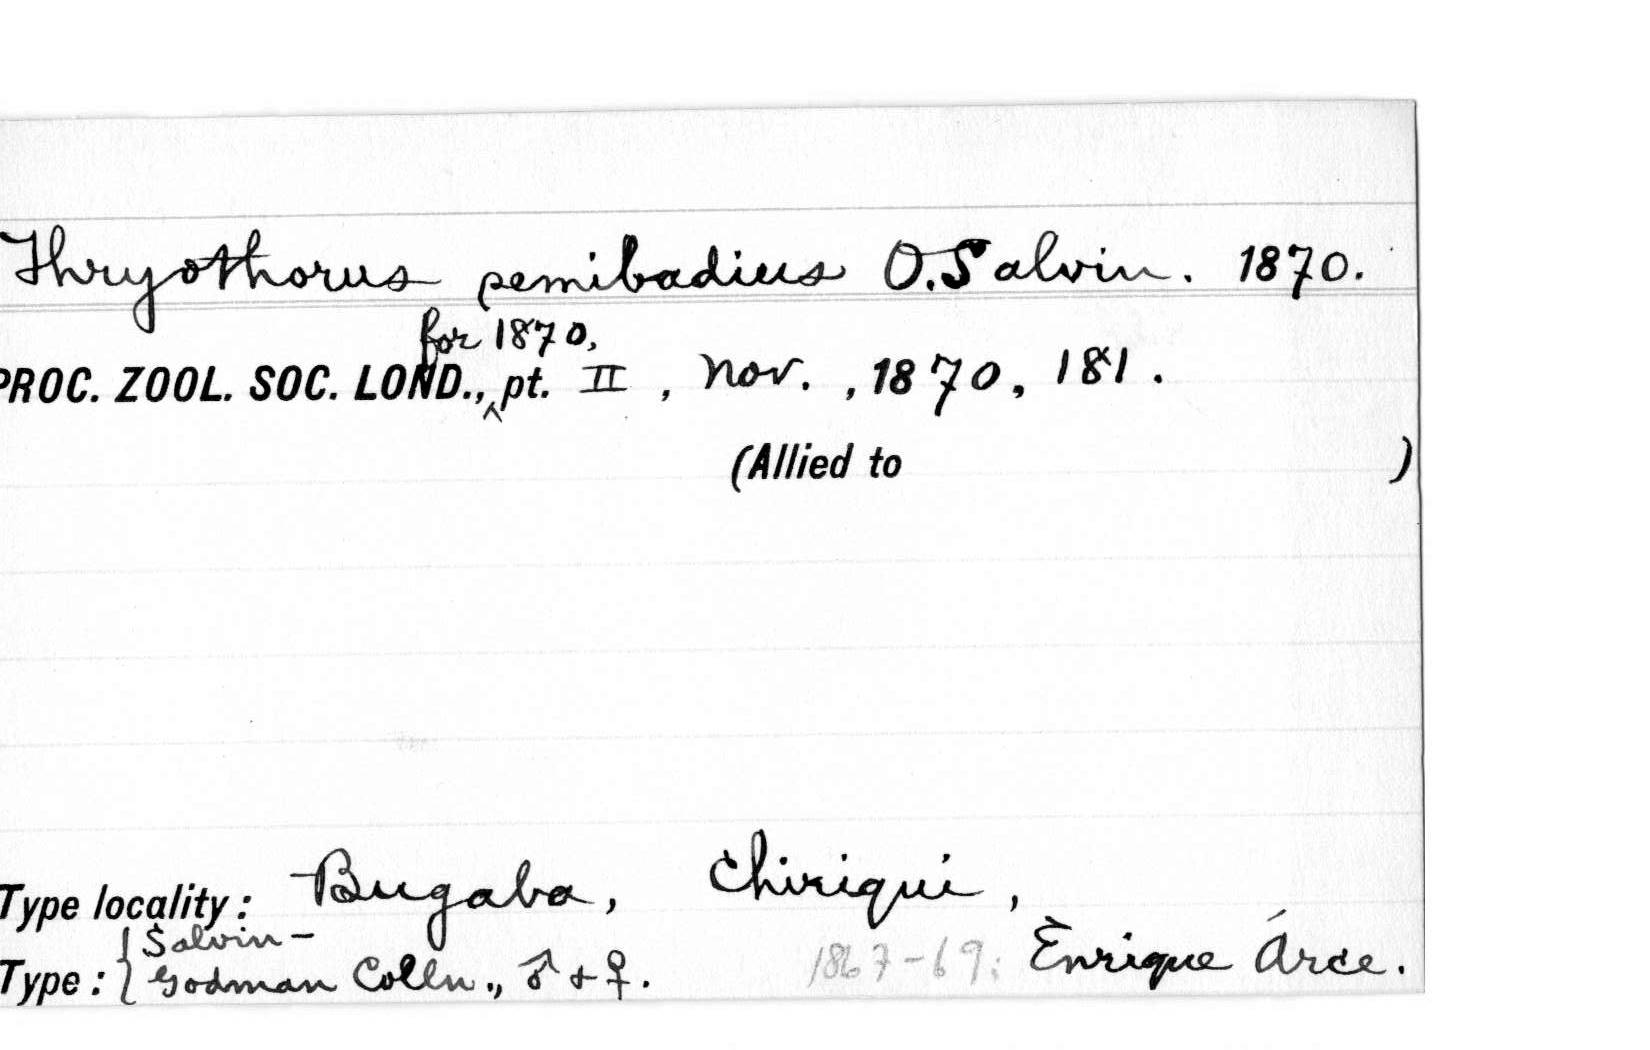 Thryothorus semibadius O. Salvin. 1870.
for 1870,
PROC. ZOOL. SOC. LOND., ^ pt. II, Nov., 1870, 181.
(Allied to )
Type locality: Bugaba, Chiriqui,
Salvin-
Type: { Godman Colln., ♂ + ♀. 1867-69: Enrique Árce.